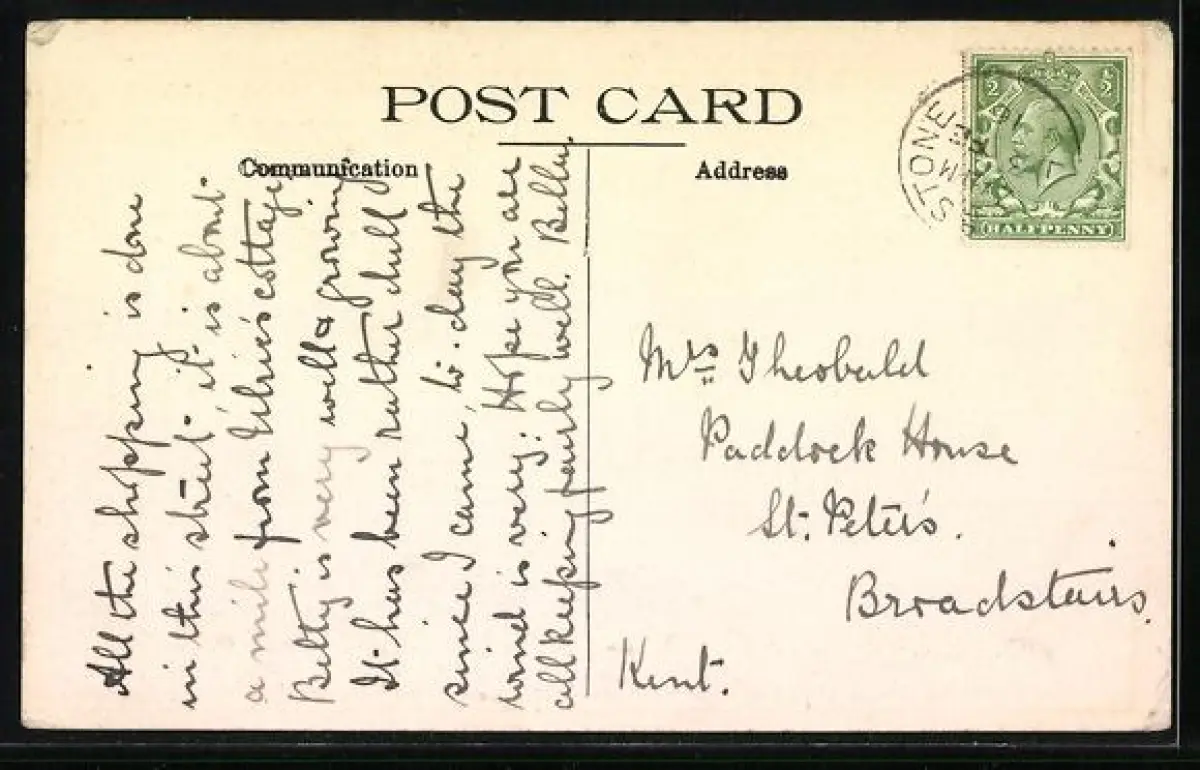 POST CARD
Communication
Address
STONE
½ ½
HALFPENNY
All the shopping is done
in this street. it is about
a mile from cottage
Betty is very well & growing
It has been rather dull
since I came, to-day the
wind is very. Hope you are
all keeping fairly well.
Mrs Theobald
Paddock House
St. Peter's.
Broadstairs.
Kent.